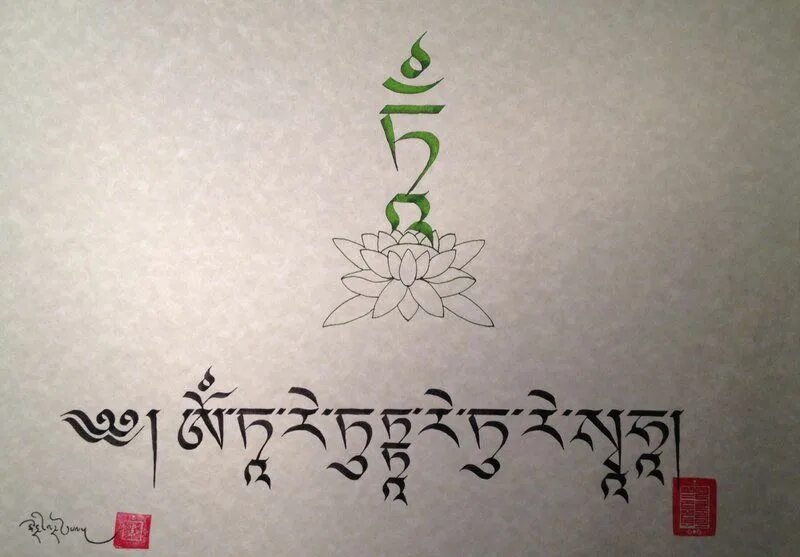 ཏཱྃ
༄༅། ཨོཾ་ཏཱ་རེ་ཏུ་ཏྟཱ་རེ་ཏུ་རེ་སྭཱ་ཧཱ།